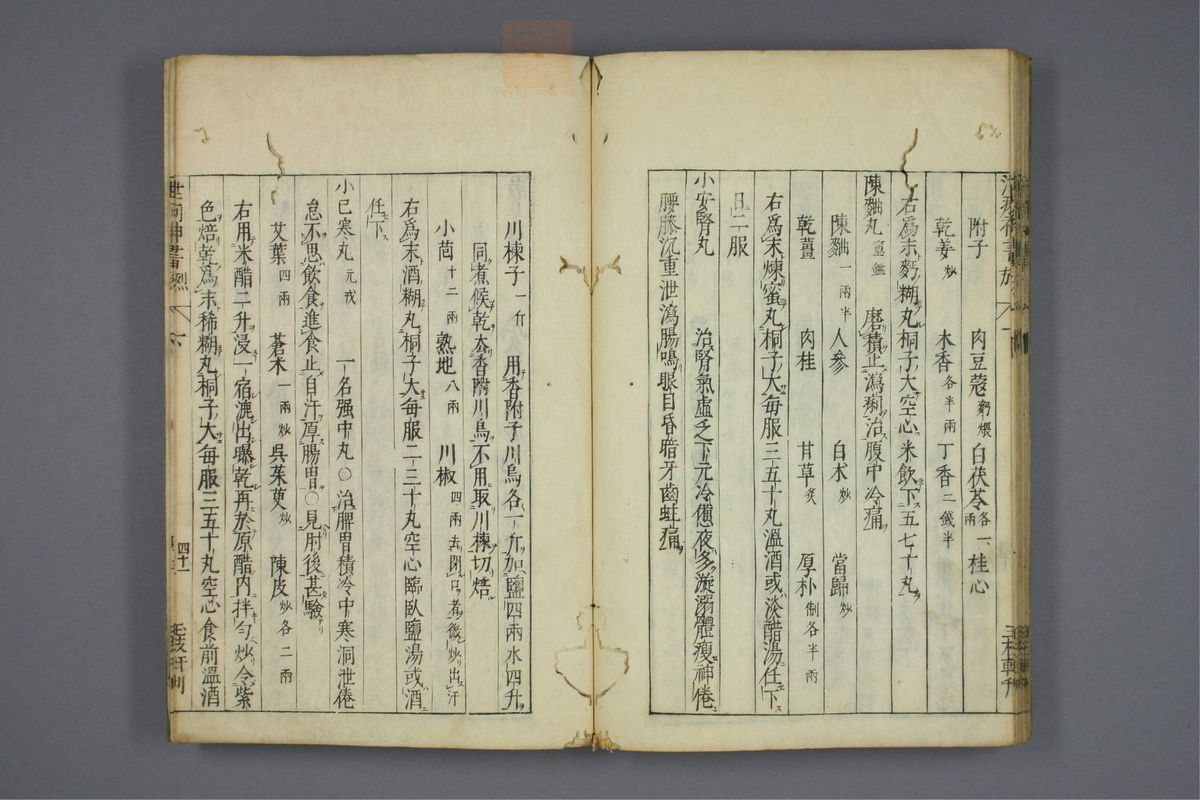 附子 肉豆蔻 麪煨 白茯苓 各一兩 桂心
乾姜 炒 木香 各半兩 丁香 二錢半
右爲末麪糊丸桐子大空心米飲下五七十丸
陳麯丸 磨積止瀉痢治腹中冷痛
陳麯 一兩半 人參 白朮 炒 當歸 炒
乾薑 肉桂 甘草 炙 厚朴 制各半兩
右爲末煉蜜丸桐子大每服三五十丸溫酒或淡醋湯任下
日二服
小安腎丸 治腎氣虛乏下元冷憊夜多漩溺體瘦神倦
腰膝沉重泄瀉腸鳴眼目昏暗牙齒蛀痛
川楝子 一斤 用香附子川烏各一斤加鹽四兩水四升
同煮候乾去香附川烏不用取川楝切焙
小茴 十二兩 熟地 八兩 川椒 四兩去閉口者微炒出汗
右爲末酒糊丸桐子大每服二三十丸空心臨臥鹽湯或酒
任下
小已寒丸 元戎 一名强中丸○治脾胃積冷中寒洞泄倦
怠不思飲食進食止自汗厚腸胃○見肘後甚驗
艾葉 四兩 蒼朮 一兩炒 吳茱萸 炒 陳皮 炒各二兩
右用米醋二升浸一宿漉出曝乾再於原醋內拌勻炒令紫
色焙乾爲末稀糊丸桐子大每服三五十丸空心食前溫酒
四十一